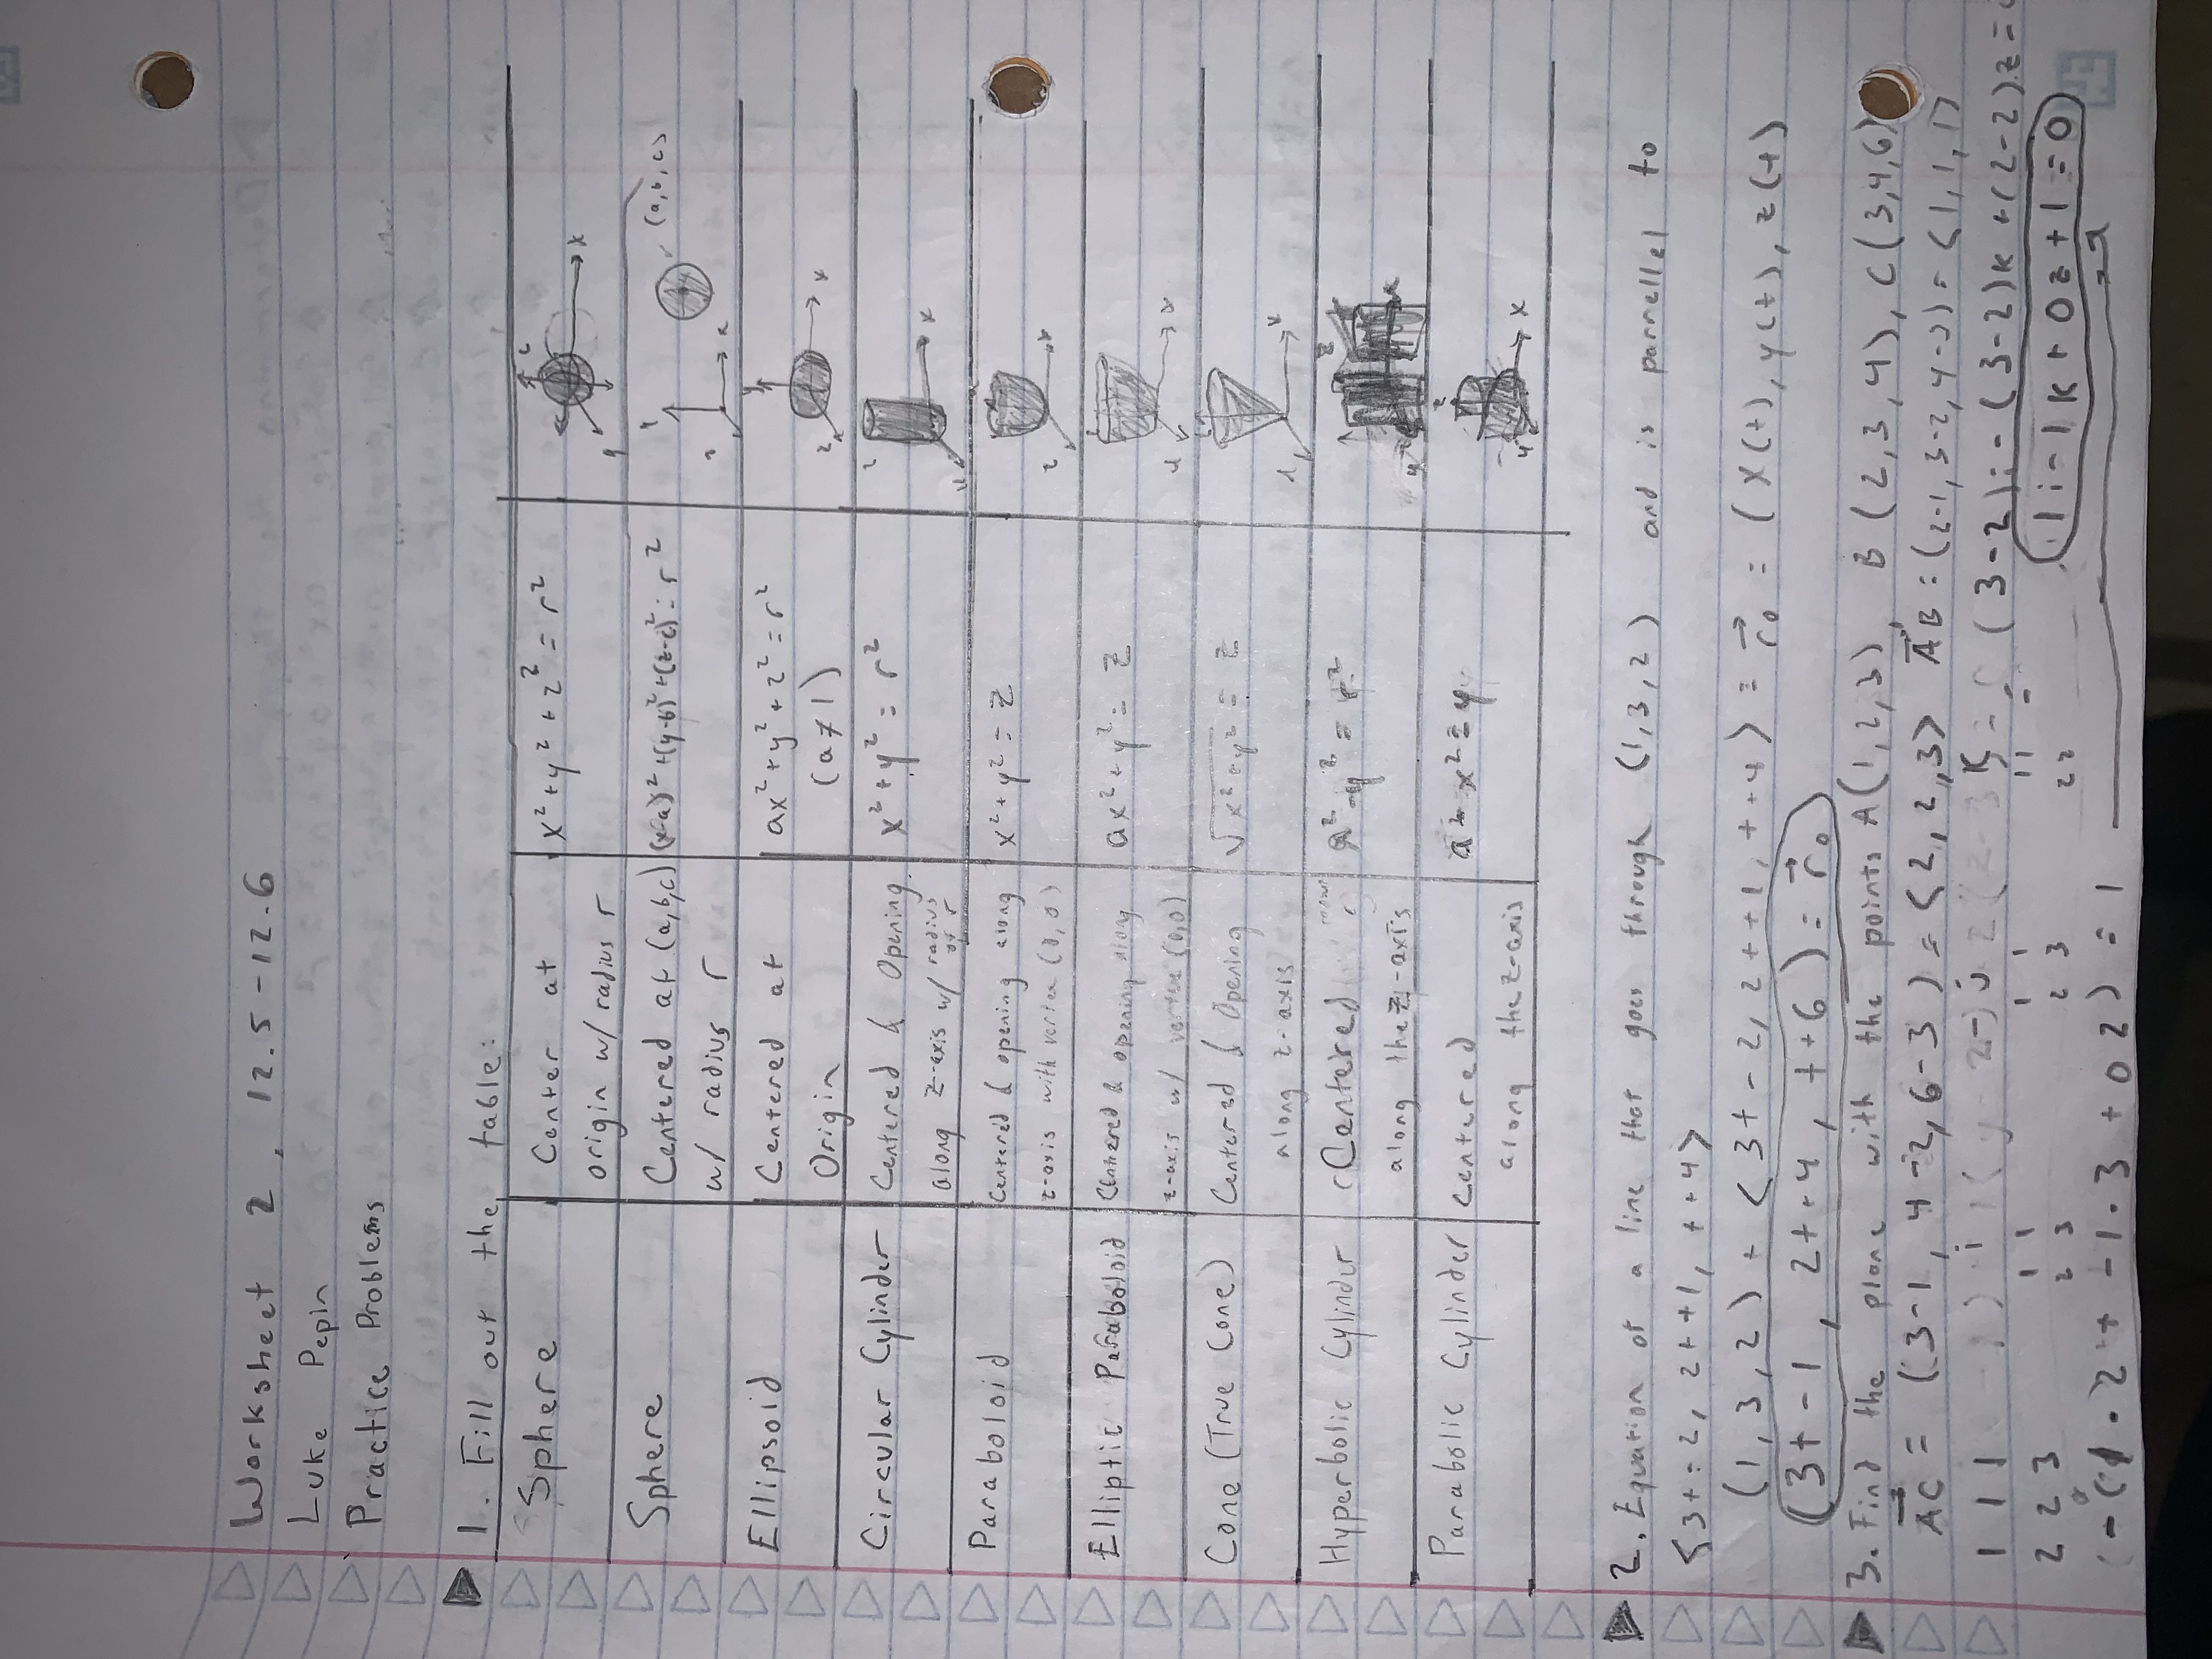 Worksheet 2, 12.5-12.6
Luke Pepin
Practice Problems
1. Fill out the table:
Sphere
Center at
origin w/ radius r
x² + y² + z² = r²
z
x
y
Sphere
Centered at (a,b,c)
w/ radius r
(x-a)² + (y-b)² + (z-c)² = r²
(a,b,c)
Ellipsoid
Centered at
Origin
ax² + y² + z² = r²
(a ≠ 1)
y
x
z
Circular Cylinder
Centered & Opening
along z-axis w/ radius
of r
x² + y² = r²
z
x
y
Paraboloid
Centered & opening along
z-axis with vertex (0,0)
x² + y² = z
Elliptic Paraboloid
Centered & opening along
z-axis w/ vertex (0,0)
ax² + y² = z
x
Cone (True Cone)
Centered & Opening
along z-axis
√x² + y² = z
x
Hyperbolic Cylinder
Centered
along the z-axis
x² - y² = r²
z
x
y
Parabolic Cylinder
Centered
along the z-axis
x² = y
z
x
y
2. Equation of a line that goes through (1,3,2) and is parrellel to
<3t-2, 2t+1, t+4>
(1,3,2) + <3t-2, 2t+1, t+4> = r₀ = (x(t), y(t), z(t)
(3t-1, 2t+4, t+6) = r₀
3. Find the plane with the points A(1,2,3), B(2,3,4), C(3,4,6)
AC = (3-1, 4-2, 6-3) = <2,2,3> AB = (2-1, 3-2, 4-3) = <1,1,1>
1 1 1 i - j K = (3-2)i - (3-2)k + (2-2)z =
2 2 3 1 1 1 1 1 1 =
2 3 2 3 2 2
1i - 1k + 0z + 1 = 0
-(1·2 + -1·3 + 0z) = 1